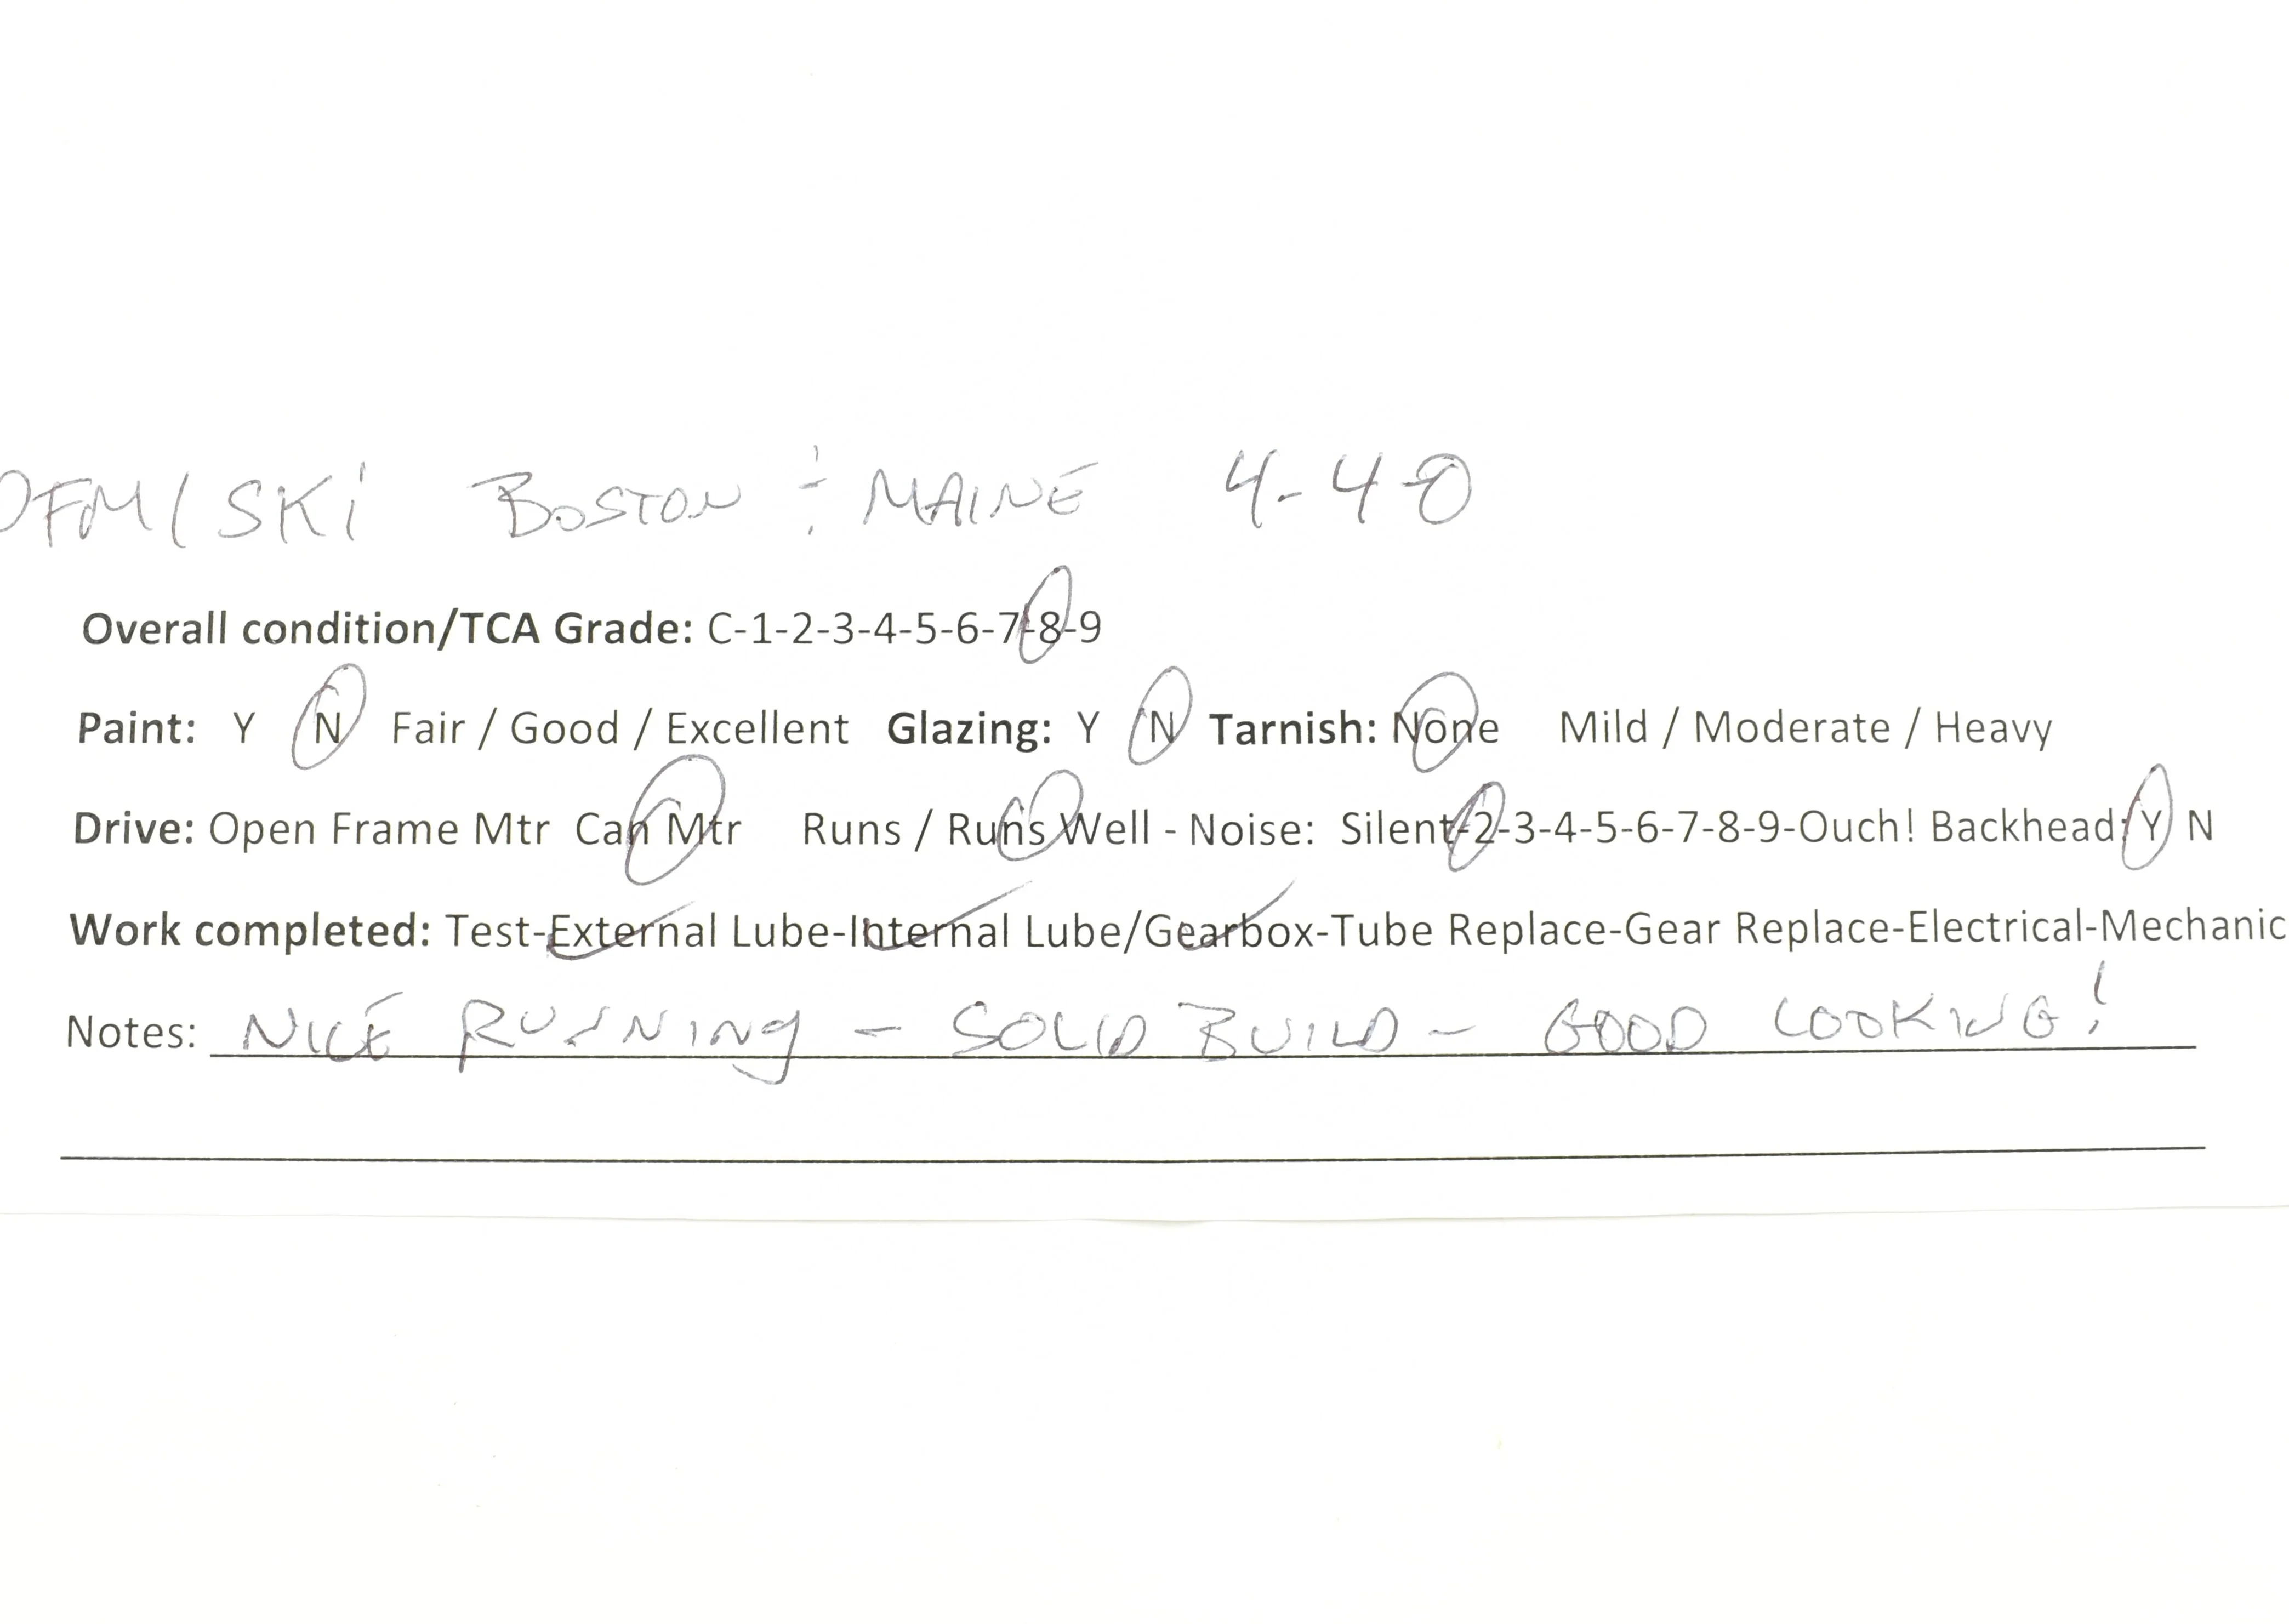 OFM/SKi BOSTON & MAINE 4-4-0
Overall condition/TCA Grade: C-1-2-3-4-5-6-7-8-9
Paint: Y N Fair / Good / Excellent Glazing: Y N Tarnish: None Mild / Moderate / Heavy
Drive: Open Frame Mtr Can Mtr Runs / Runs Well - Noise: Silent-2-3-4-5-6-7-8-9-Ouch! Backhead: Y N
Work completed: Test-External Lube-Internal Lube/Gearbox-Tube Replace-Gear Replace-Electrical-Mechanic
Notes: NICE RUNNING - SOLID BUILD - GOOD LOOKING!